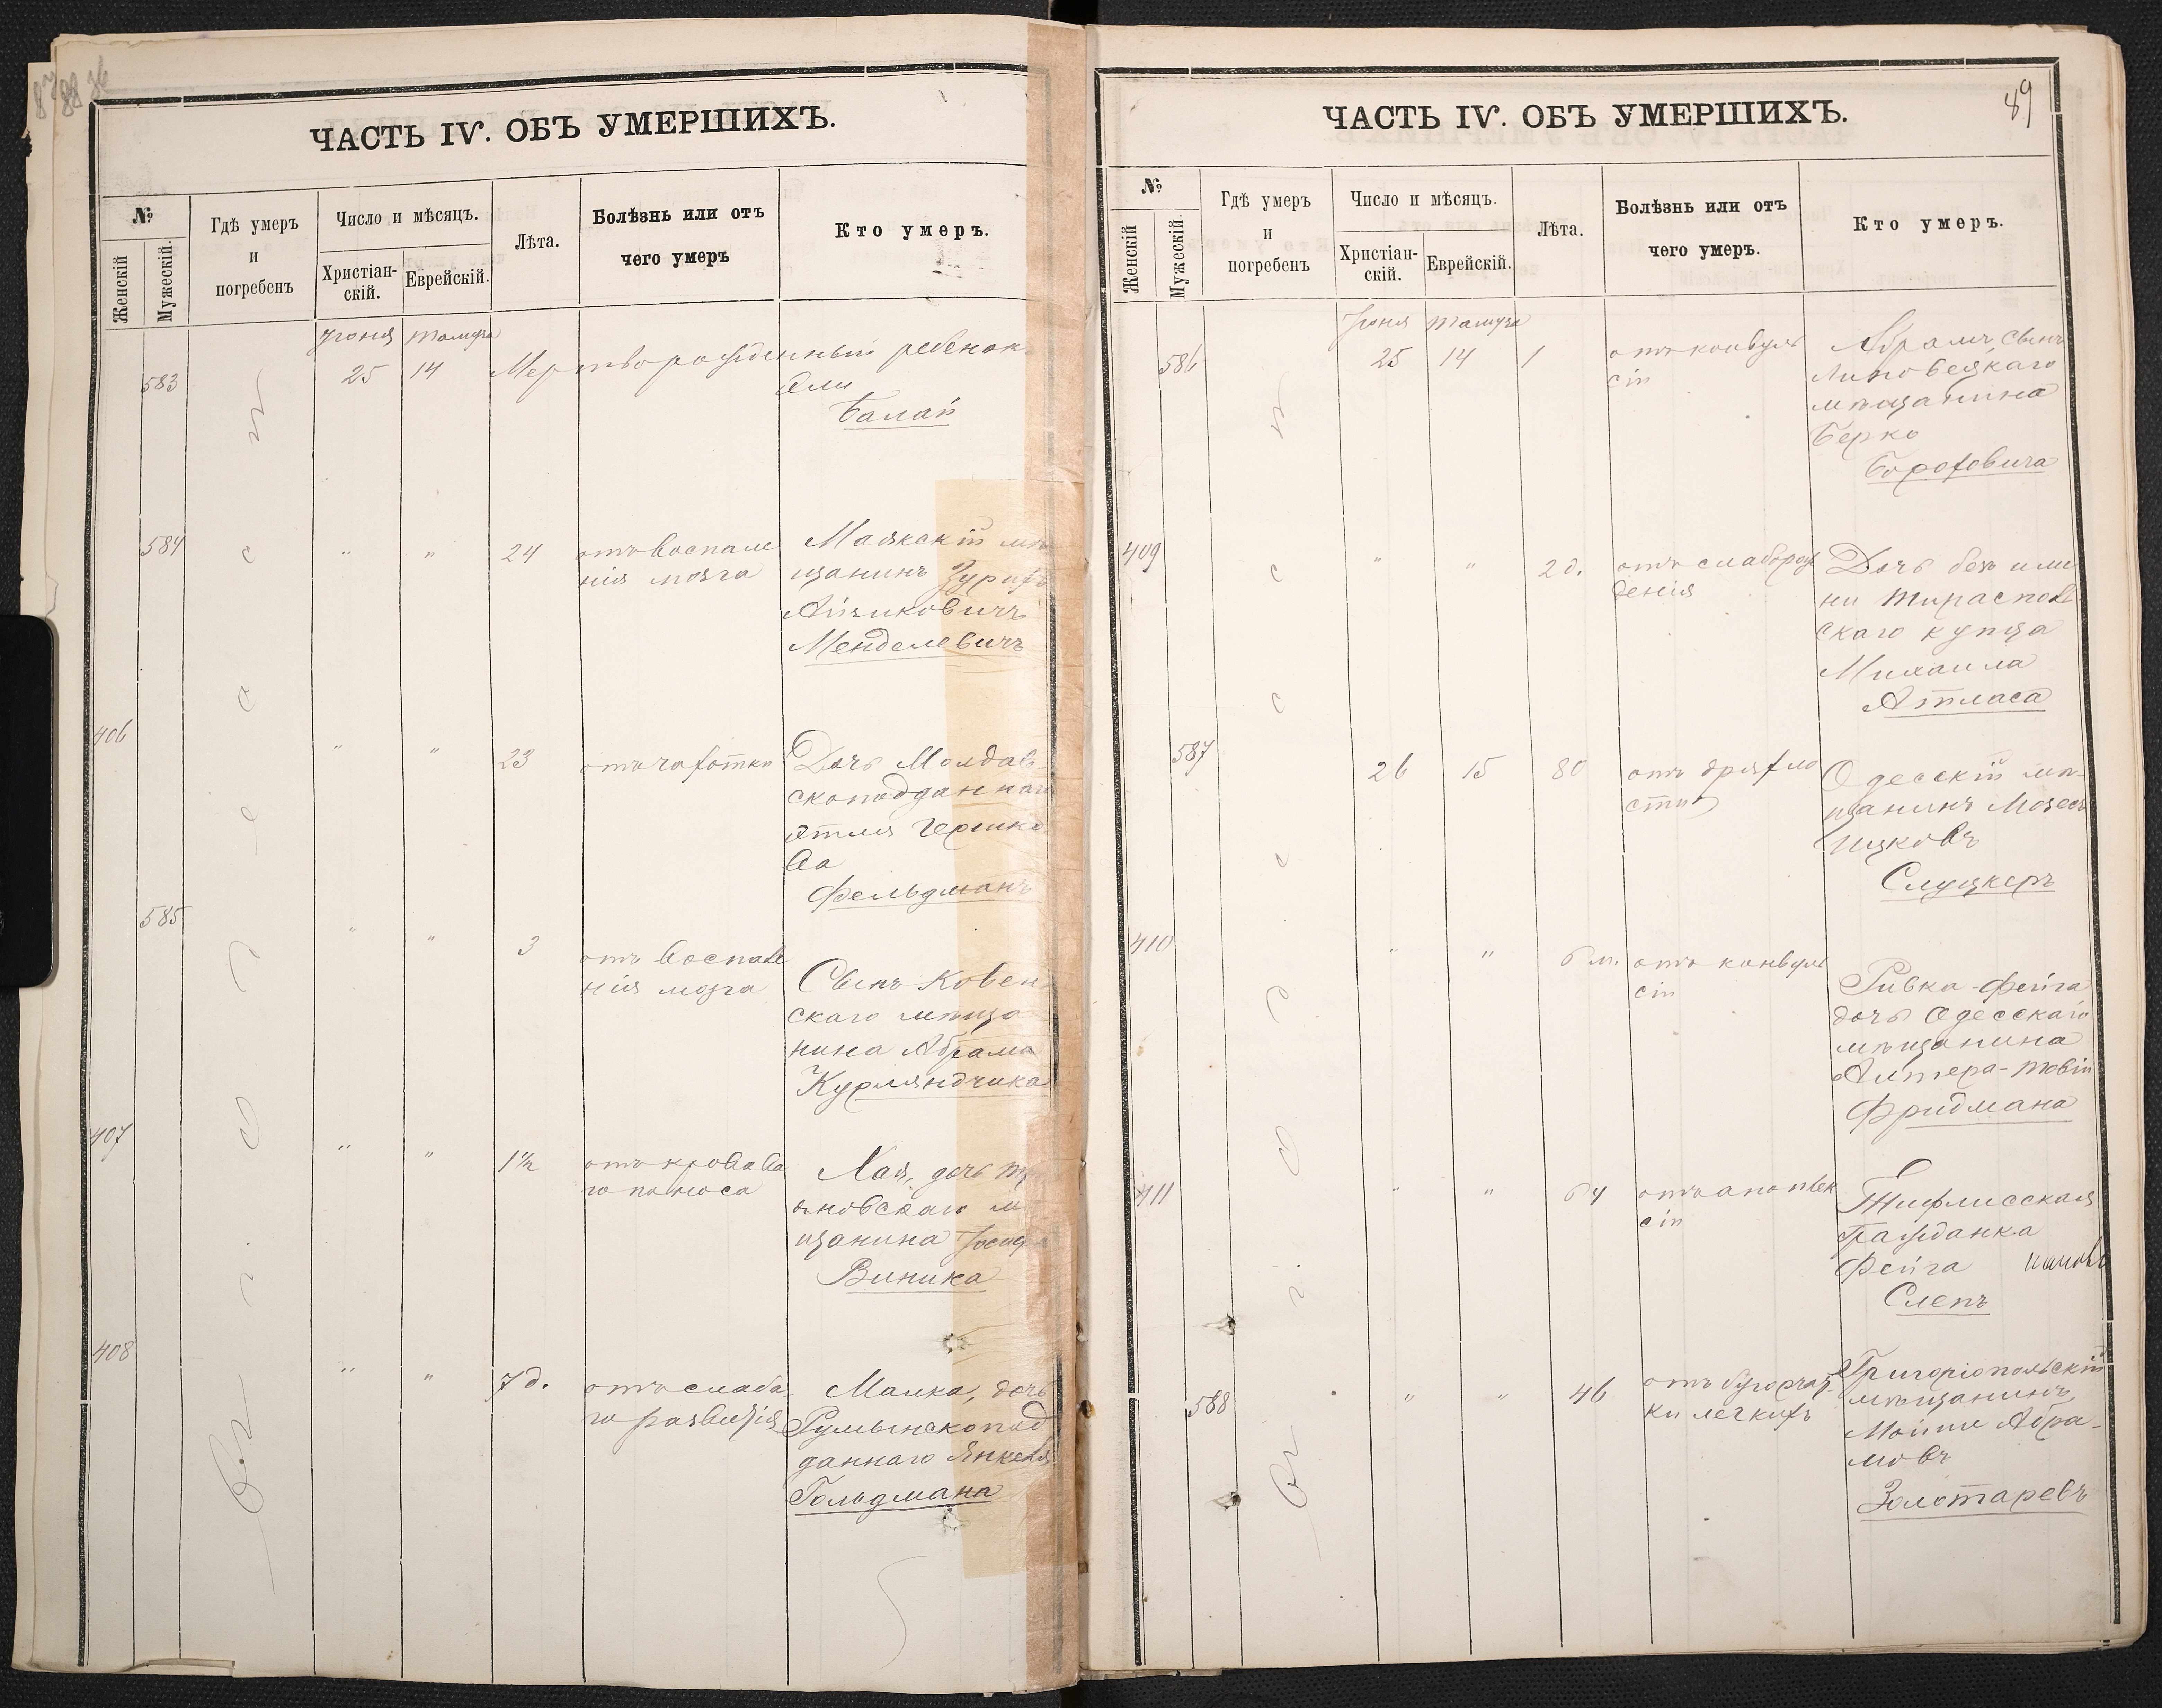 ЧАСТЬ IV. ОБЪ УМЕРШИХЪ.
№
Женскій
Мужескій.
Гдѣ умеръ
и
погребенъ
Число и мѣсяцъ.
Христіан-
скій.
Еврейскій.
Лѣта.
Болѣзнь или отъ
чего умеръ
Кто умеръ.
Іюня Тамуза
583 25 14 Мертворожденный ребенок
Эли
Балай
584 " " 24
отъ воспале
нія мозга
Маякскій мѣ
щанинъ
Айзиковичъ
Менделевичъ
406 " " 23
отъ чахотки
Дочь Молдав-
скоподданнаго
Этля Гершко
ва
Фельдманъ
585 " " 3
отъ воспале
нія мозга
Сынъ Ковен
скаго мѣща
нина Абрама
Курляндчика
407 " " 1½
отъ кровава
го поноса
Хая, дочь
яновскаго м
щанина Іосифа
Виника
408 " " 7 д.
отъ слаба
го развитія
Малка, дочь
Румынскопод
даннаго Янкеля
Гольдмана
въ г. Одессѣ
ЧАСТЬ IV. ОБЪ УМЕРШИХЪ.
89
№
Женскій
Мужескій.
Гдѣ умеръ
и
погребенъ
Число и мѣсяцъ.
Христіан-
скій.
Еврейскій.
Лѣта.
Болѣзнь или отъ
чего умеръ.
Кто умеръ.
Іюня Тамуза
586 25 14 1
отъ конвуль
сіи
Абрамъ, сынъ
Липовецкаго
мѣщанина
Берко
Бороховича
409 " " 2 д.
отъ слаборож
денія
Дочь безъ име
ни Тирасполь
скаго купца
Михаила
Атласа
587 26 15 80
отъ дряхло
сти
Одесскій мѣ-
щанинъ Мозесъ
Ицковъ
Слуцкеръ
410 " " 6 м.
отъ конвуль
сіи
Ривка-Фейга
дочь Одесскаго
мѣщанина
Алтера-Товіи
Фридмана
411 " " 64
отъ апоплек
сіи
Тифлисская
Гражданка
Фейга
Слепъ
588 " " 46
отъ бугорчат
ки легкихъ
Григоріопольскій
мѣщанинъ
Мойше Абра-
мовъ
Золотаревъ
въ г. Одессѣ